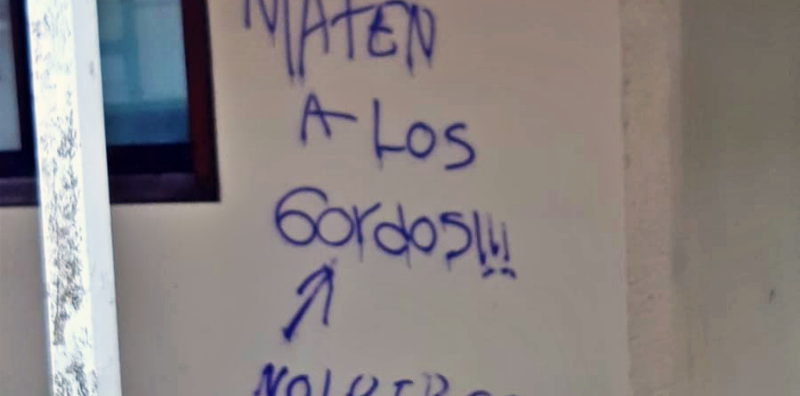 MATEN
A LOS
GordoS!!!